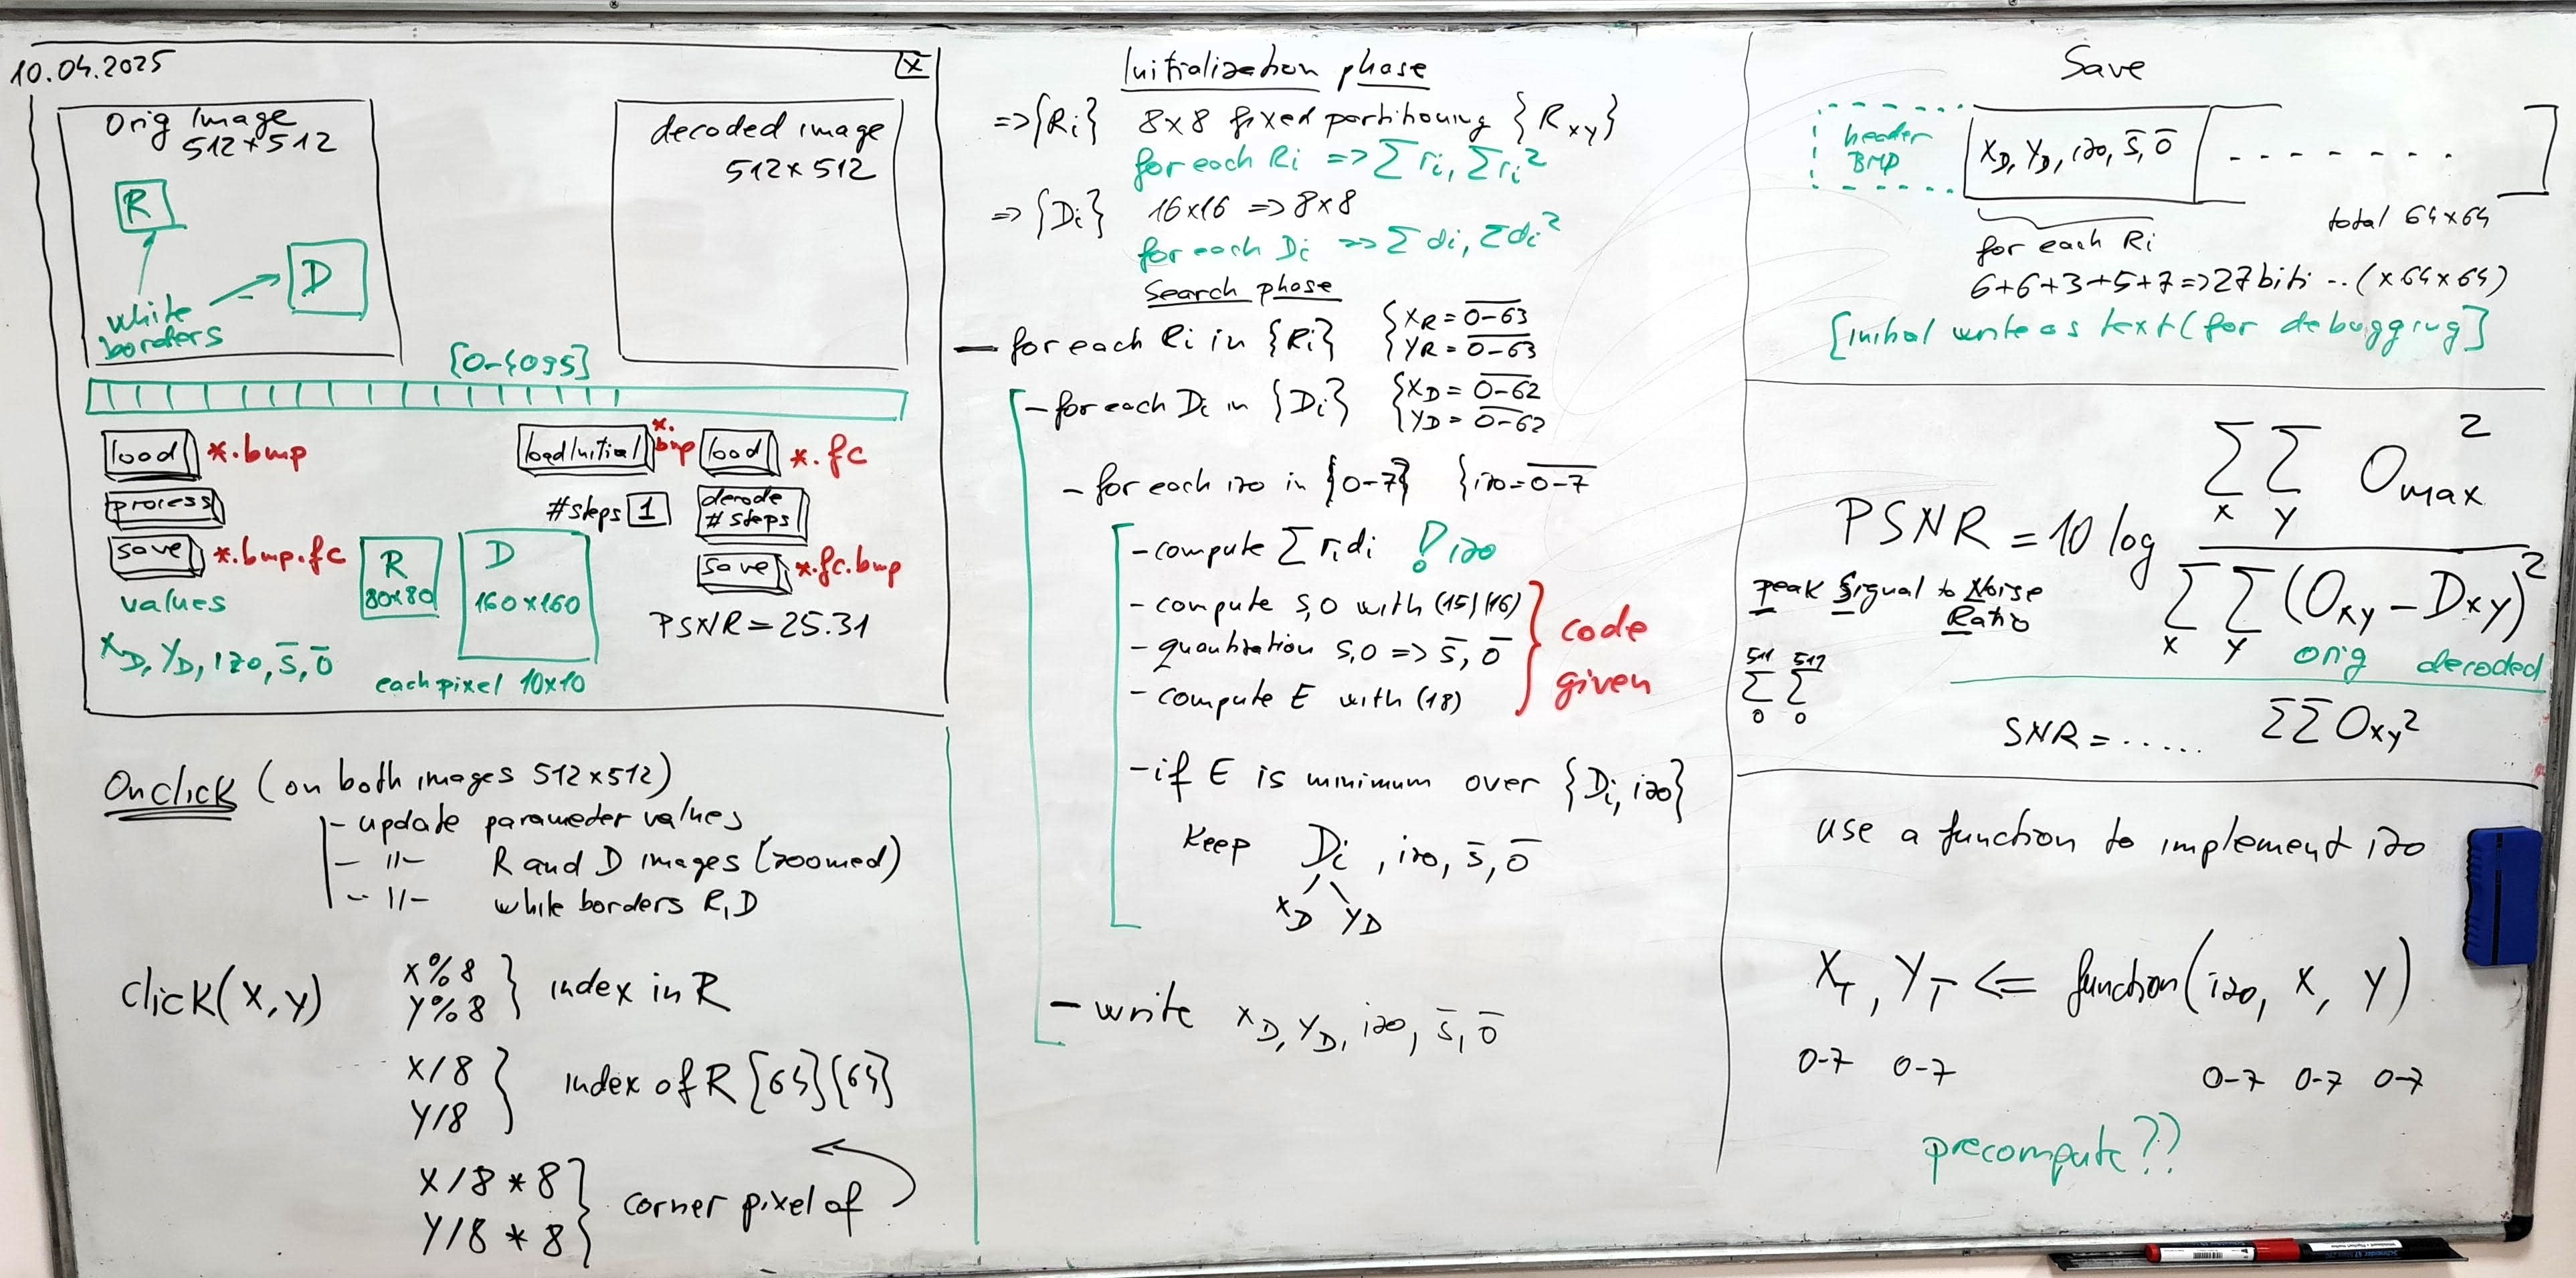 10.04.2025
X
Orig Image
512*512
R
D
white
borders
decoded image
512x512
[0-4095]
load *.bmp
process
save *.bmp.fc
values
XD, YD, izo, s̄, ō
R
80x80
D
160x160
each pixel 10x10
loadInitial *.bmp
load *.fc
#steps 1
decode
# steps
save *.fc.bmp
PSNR = 25.31
Onclick (on both images 512x512)
- update parameter values
- -//- R and D images (zoomed)
- -//- white borders R, D
click(x,y)
x%8
y%8
} index in R
x/8
y/8
} index of R[64][64]
x/8*8
y/8*8
} corner pixel of
Initialization phase
=> {Ri} 8x8 fixed partitioning {Rxy}
for each Ri => Σri, Σri²
=> {Di} 16x16 => 8x8
for each Di => Σdi, Σdi²
Search phase
- for each Ri in {Ri} { XR = 0-63
YR = 0-63
- for each Di in {Di} { XD = 0-62
YD = 0-62
- for each izo in {0-7} { izo = 0-7
- compute Σ ri di ! izo
- compute s, o with (15)(16)
- quantization s, o => s̄, ō
- compute E with (18)
} code
given
- if E is minimum over {Di, izo}
Keep Di, izo, s̄, ō
XD YD
- write XD, YD, izo, s̄, ō
Save
header
BMP
XD, YD, izo, s̄, ō
.......
total 64x64
for each Ri
6+6+3+5+7 => 27 biti .. (x64x64)
[initial write as text (for debugging]
PSNR = 10 log Σx Σy Omax² / Σx Σy (Oxy - Dxy)²
peak Signal to Noise
Ratio
orig decoded
511 512
Σ Σ
0 0
SNR = ..... ΣΣ Oxy²
use a function to implement izo
XT, YT <= function(izo, x, y)
0-7 0-7 0-7 0-7 0-7
precompute??